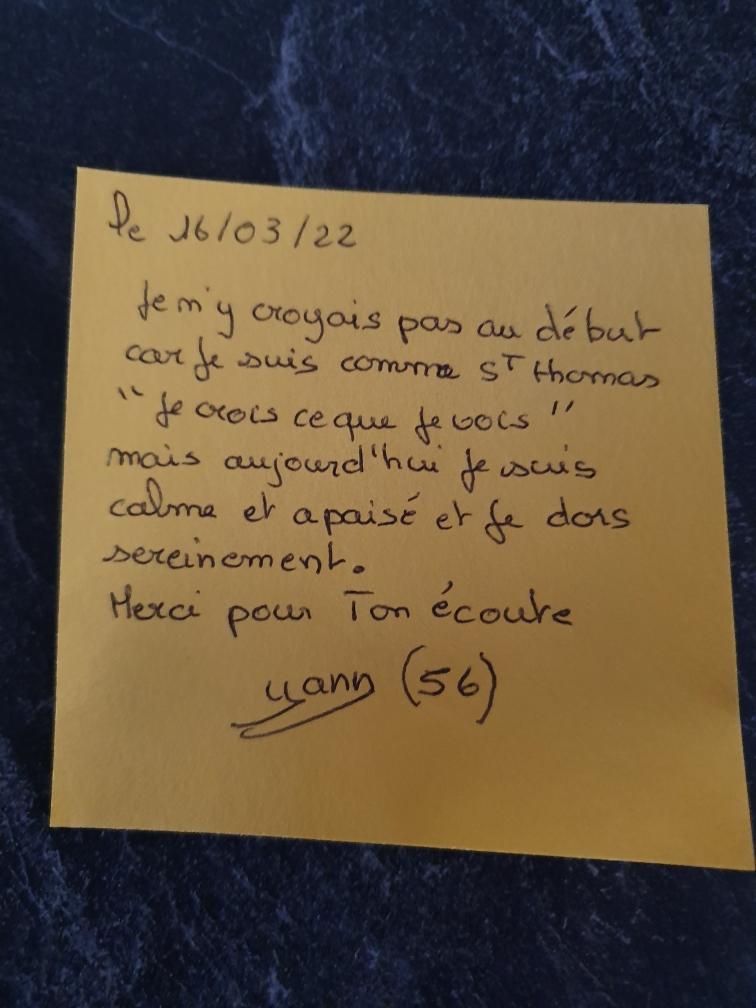 le 16/03/22
Je n'y croyais pas au début
car je suis comme ST thomas
"Je crois ce que je vois"
mais aujourd'hui je suis
calme et apaisé et je dors
sereinement.
Merci pour Ton écoute
yann (56)